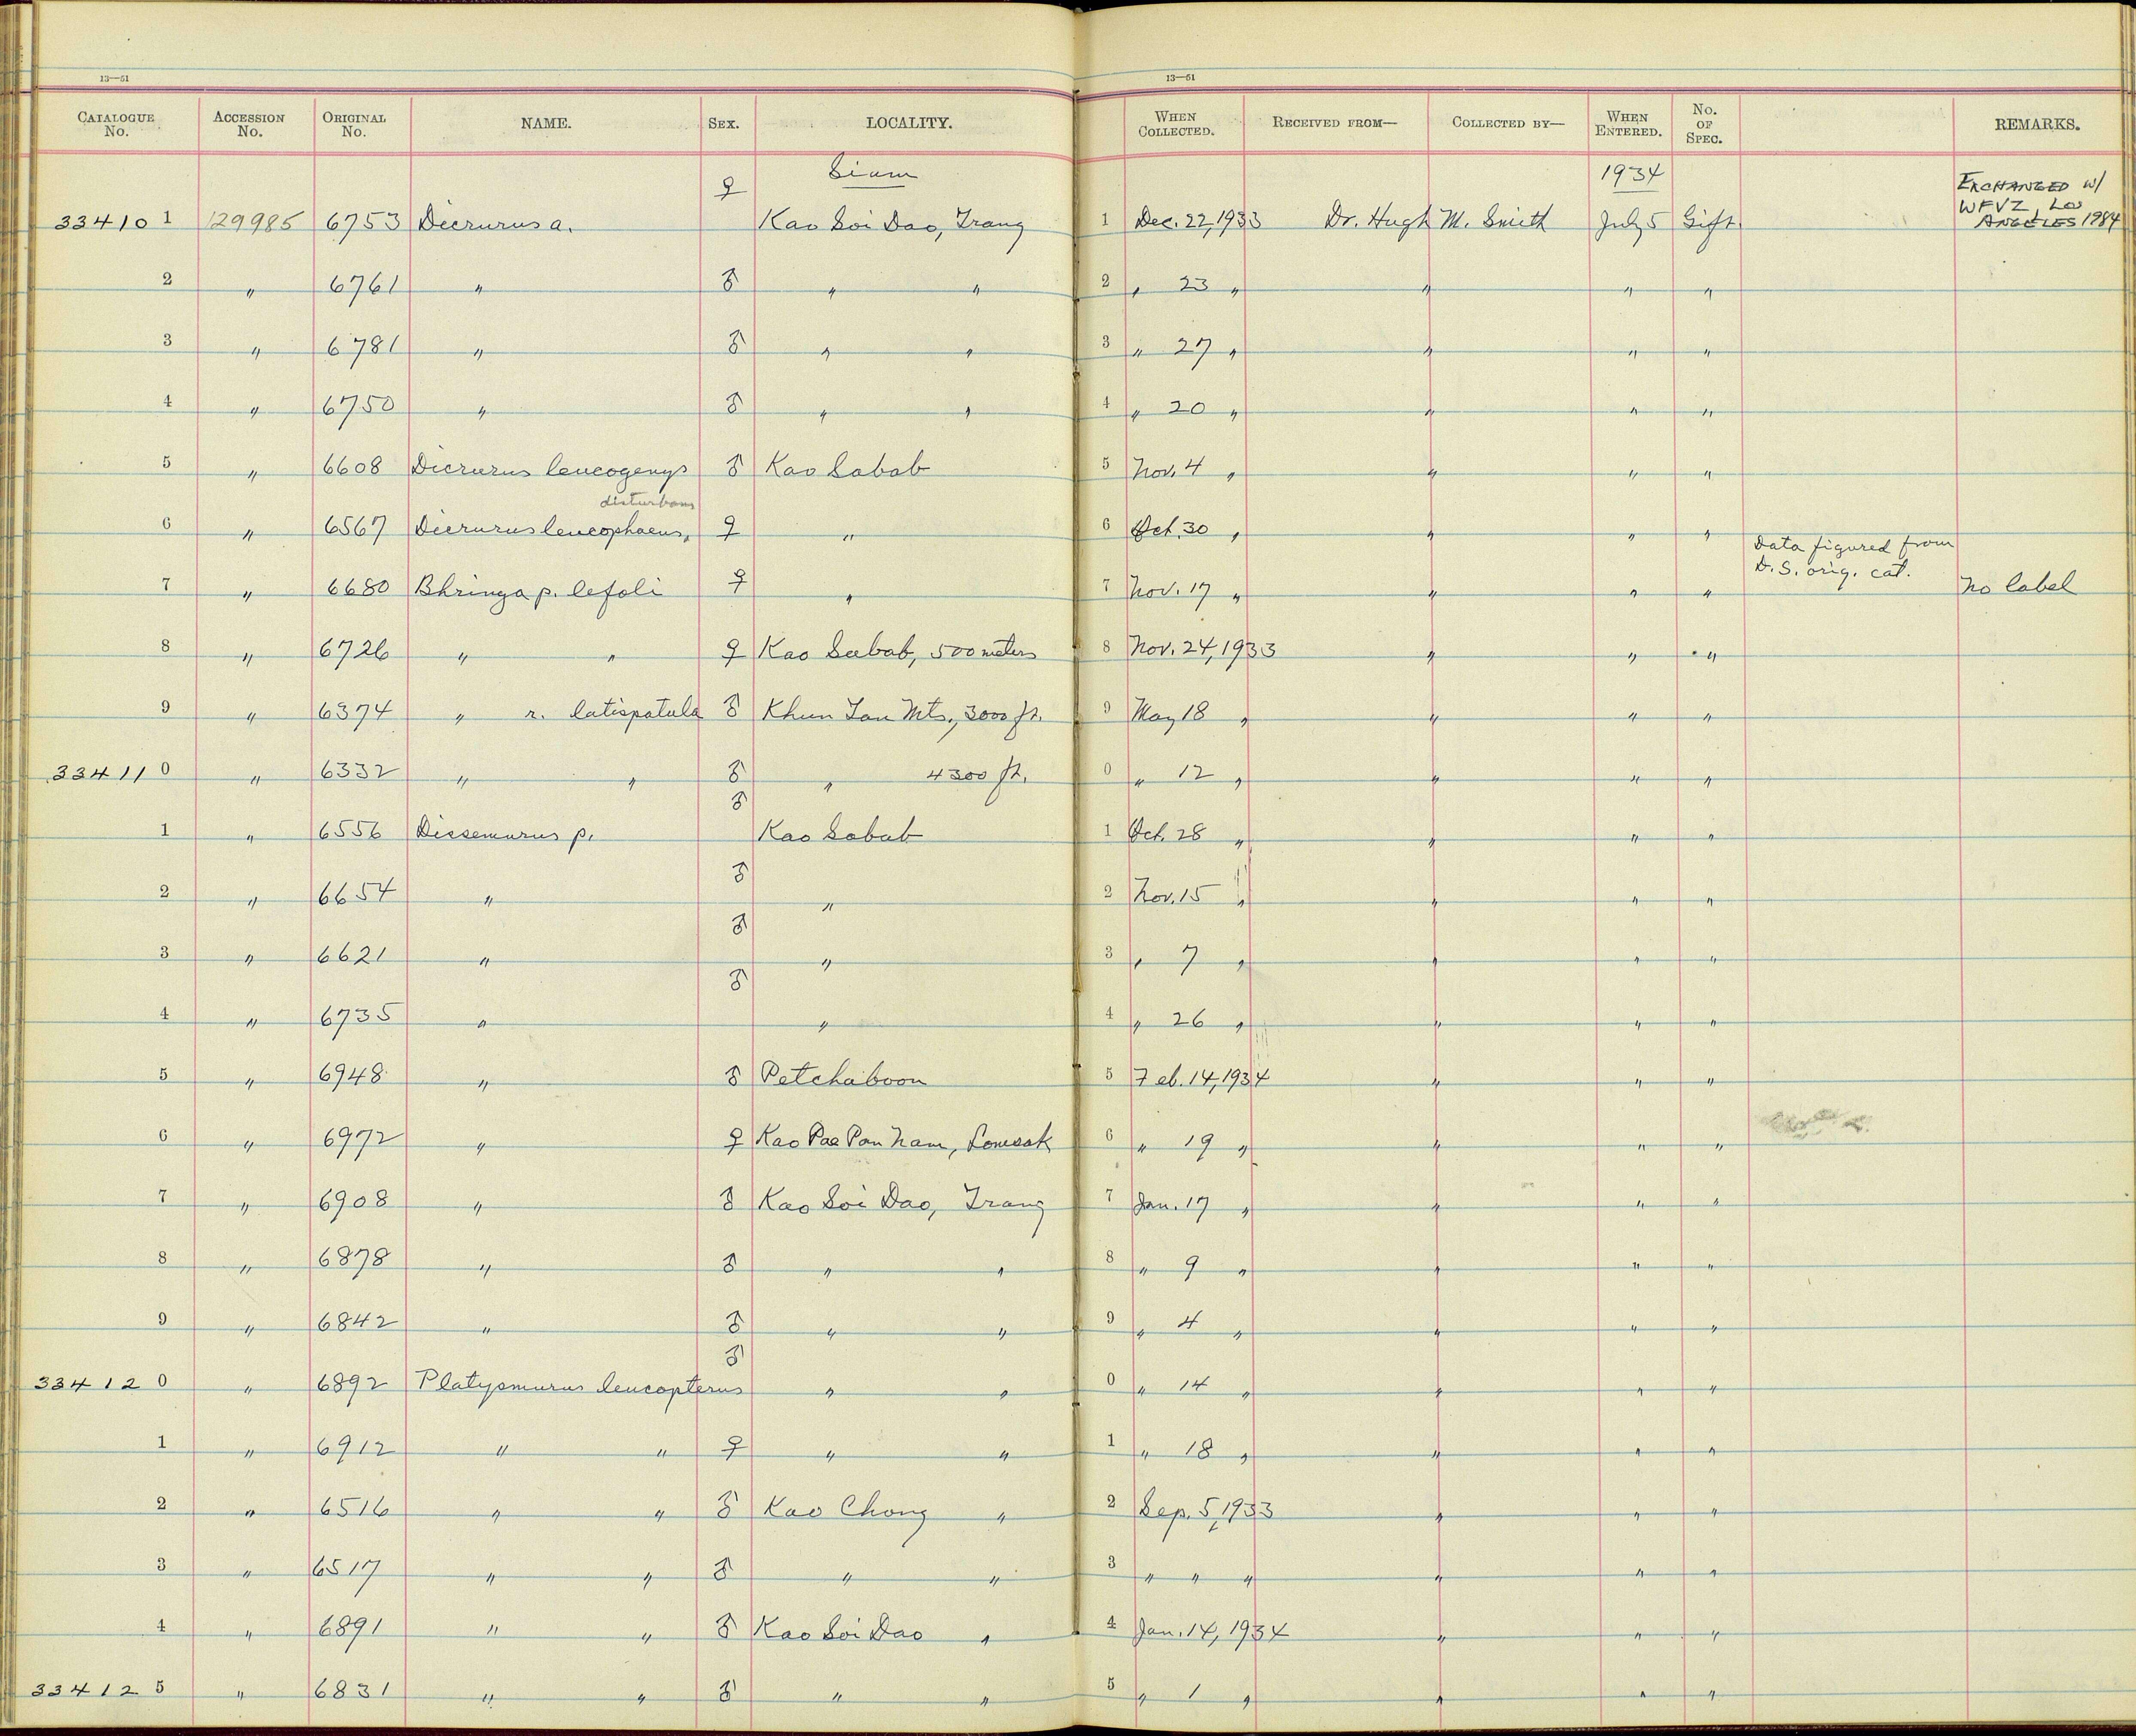 13—61 13—61
CATALOGUE No. ACCESSION No. ORIGINAL No. NAME. SEX. LOCALITY. WHEN COLLECTED. RECEIVED FROM— COLLECTED BY— WHEN ENTERED. No. OF SPEC. REMARKS.
Siam 1934
EXCHANGED W/
WFVZ, LOS
ANGELES 1984
33410 1 129985 6753 Dicrurus a. ♀ Kao Soi Dao, Trang 1 Dec. 22, 1933 Dr. Hugh M. Smith July 5 Gift.
2 " 6761 " ♂ " " 2 " 23 " " " "
3 " 6781 " ♂ " " 3 " 27 " " " "
4 " 6750 " ♂ " " 4 " 20 " " " "
5 " 6608 Dicrurus leucogenys ♂ Kao Sabab 5 Nov. 4 " " " "
disturbans
6 " 6567 Dicrurus leucophaeus, ♀ " 6 Oct. 30 " " " "
Data figured from
D.S. orig. cat.
7 " 6680 Bhringa p. lefoli ♀ " 7 Nov. 17 " " " " No label
8 " 6726 " " ♀ Kao Sabab, 500 meters 8 Nov. 24, 1933 " " "
9 " 6374 " r. latispatula ♂ Khun Tan Mts., 3000 ft. 9 May 18 " " " "
33411 0 " 6332 " " ♂ " 4300 ft. 0 " 12 " " " "
1 " 6556 Dissemurus p. ♂ Kao Sabab 1 Oct. 28 " " " "
2 " 6654 " ♂ " 2 Nov. 15 " " " "
3 " 6621 " ♂ " 3 " 7 " " " "
4 " 6735 " ♂ " 4 " 26 " " " "
5 " 6948 " ♂ Petchaboon 5 Feb. 14, 1934 " " "
6 " 6972 " ♀ Kao Pae Pan Nam, Lomsak 6 " 19 " " " "
7 " 6908 " ♂ Kao Soi Dao, Trang 7 Jan. 17 " " " "
8 " 6878 " ♂ " " 8 " 9 " " " "
9 " 6842 " ♂ " " 9 " 4 " " " "
33412 0 " 6892 Platysmurus leucopterus ♂ " " 0 " 14 " " " "
1 " 6912 " " ♀ " " 1 " 18 " " " "
2 " 6516 " " ♂ Kao Chong " 2 Sep. 5, 1933 " " "
3 " 6517 " " ♂ " " 3 " " " " " "
4 " 6891 " " ♂ Kao Soi Dao " 4 Jan. 14, 1934 " " "
33412 5 " 6831 " " ♂ " " 5 " 1 " " " "